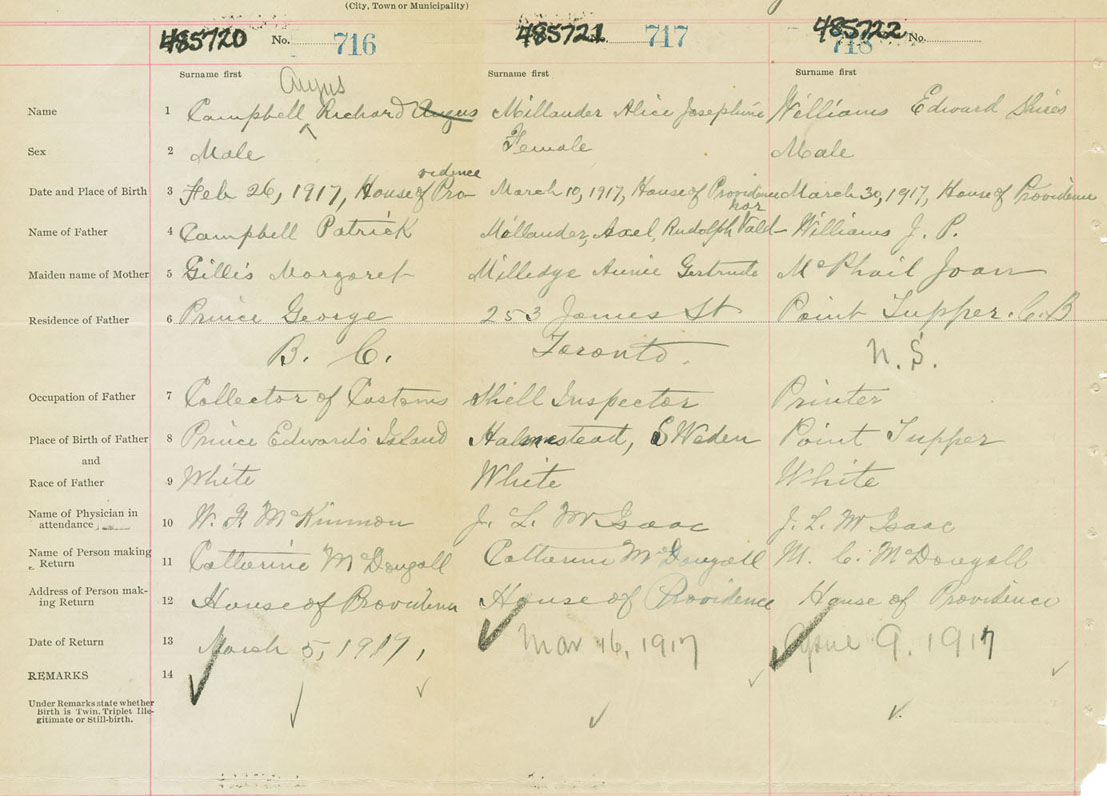 (City, Town or Municipality)
485720 No. 716 485721 717 485722 No. 718
Surname first Surname first Surname first
Angus
Name 1 Campbell Richard Angus Millander Alice Josephine Williams Edward Shires
Sex 2 Male Female Male
Date and Place of Birth 3 Feb 26, 1917, House of Providence March 10, 1917, House of Providence March 30, 1917, House of Providence
Name of Father 4 Campbell Patrick Millander, Axel, Rudolph Valdhar Williams J. P.
Maiden name of Mother 5 Gillis Margaret Milledge Annie Gertrude McPhail Joan
Residence of Father 6 Prince George 253 James St Point Tupper. C.B
B. C. Toronto. N.S.
Occupation of Father 7 Collector of Customs Shell Inspector Printer
Place of Birth of Father 8 Prince Edward's Island Halmestead, SWeden Point Tupper
and
Race of Father 9 White White White
Name of Physician in
attendance 10 W. F. McKinnon J. L. McIsaac J. L. McIsaac
Name of Person making
Return 11 Catherine McDougall Catherine McDougall M. C. McDougall
Address of Person mak-
ing Return 12 House of Providence House of Providence House of Providence
Date of Return 13 March 5, 1917, Mar 16, 1917 April 9, 1917
REMARKS 14
Under Remarks state whether
Birth is Twin, Triplet Ille-
gitimate or Still-birth.